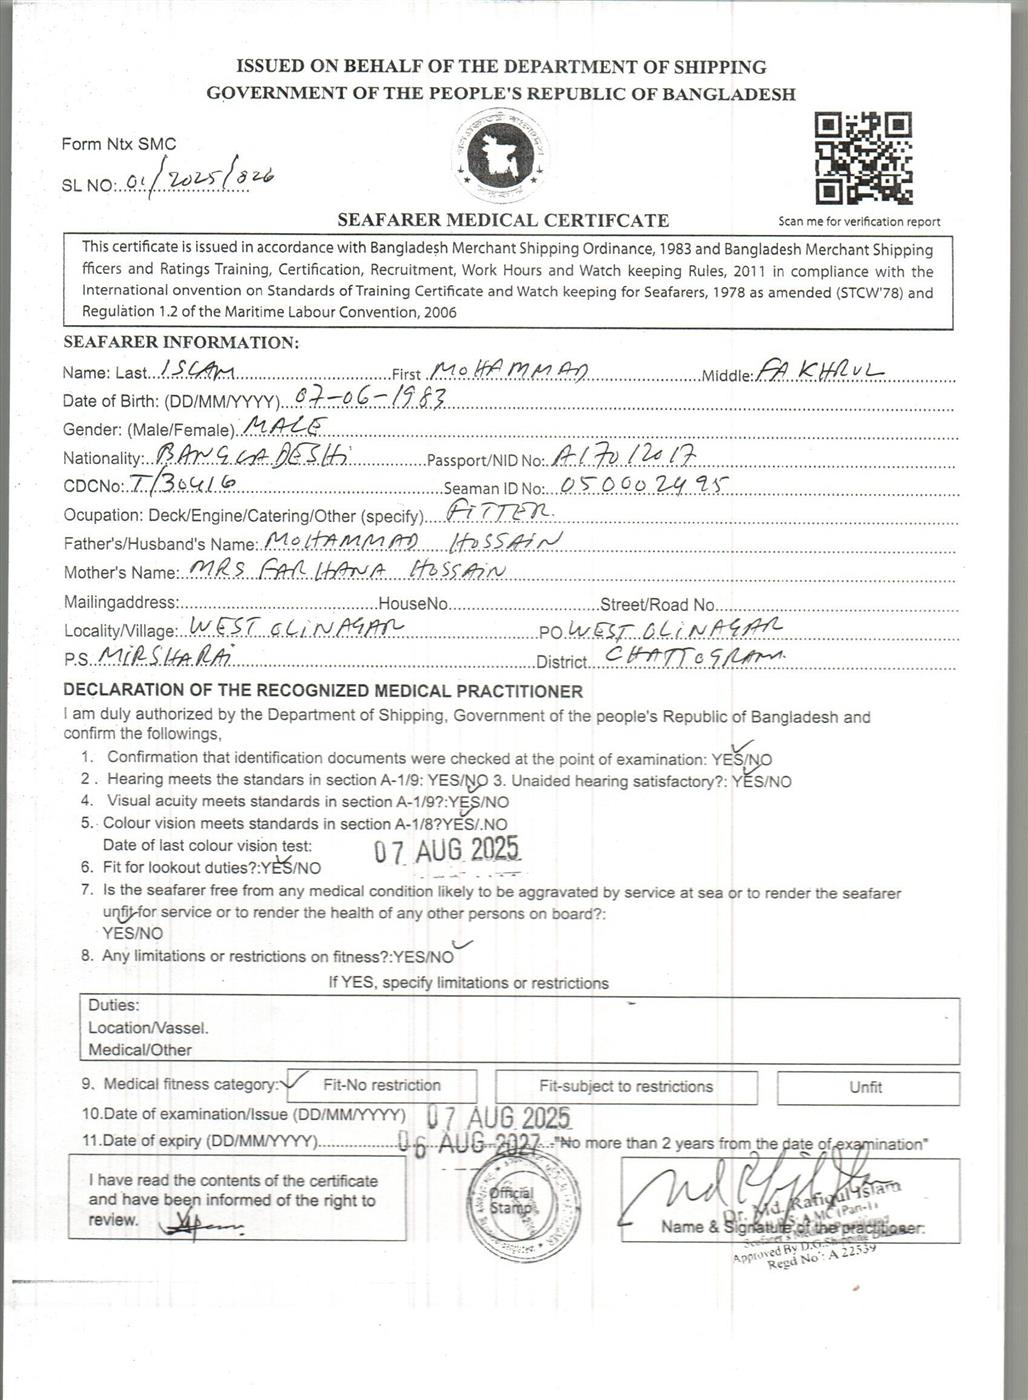 ISSUED ON BEHALF OF THE DEPARTMENT OF SHIPPING
GOVERNMENT OF THE PEOPLE'S REPUBLIC OF BANGLADESH
Form Ntx SMC
SL NO: 01/2025/826
SEAFARER MEDICAL CERTIFCATE
Scan me for verification report
This certificate is issued in accordance with Bangladesh Merchant Shipping Ordinance, 1983 and Bangladesh Merchant Shipping
fficers and Ratings Training, Certification, Recruitment, Work Hours and Watch keeping Rules, 2011 in compliance with the
International onvention on Standards of Training Certificate and Watch keeping for Seafarers, 1978 as amended (STCW'78) and
Regulation 1.2 of the Maritime Labour Convention, 2006
SEAFARER INFORMATION:
Name: Last ISLAM First MOHAMMAD Middle: FAKHRUL
Date of Birth: (DD/MM/YYYY) 07-06-1983
Gender: (Male/Female) MALE
Nationality: BANGLADESHI Passport/NID No: A17012017
CDCNo: T/30416 Seaman ID No: 050002495
Ocupation: Deck/Engine/Catering/Other (specify) FITTER.
Father's/Husband's Name: MOHAMMAD HOSSAIN
Mother's Name: MRS FARHANA HOSSAIN
Mailingaddress: HouseNo Street/Road No
Locality/Village: WEST OLINAGAR PO WEST OLINAGAR
P.S. MIRSHARAI District CHATTOGRAM.
DECLARATION OF THE RECOGNIZED MEDICAL PRACTITIONER
I am duly authorized by the Department of Shipping, Government of the people's Republic of Bangladesh and
confirm the followings,
1. Confirmation that identification documents were checked at the point of examination: YES/NO
2 . Hearing meets the standars in section A-1/9: YES/NO 3. Unaided hearing satisfactory?: YES/NO
4. Visual acuity meets standards in section A-1/9?:YES/NO
5. Colour vision meets standards in section A-1/8?YES/.NO
Date of last colour vision test: 07 AUG 2025
6. Fit for lookout duties?:YES/NO
7. Is the seafarer free from any medical condition likely to be aggravated by service at sea or to render the seafarer
unfit for service or to render the health of any other persons on board?:
YES/NO
8. Any limitations or restrictions on fitness?:YES/NO
If YES, specify limitations or restrictions
Duties:
Location/Vassel.
Medical/Other
9. Medical fitness category: Fit-No restriction Fit-subject to restrictions Unfit
10.Date of examination/Issue (DD/MM/YYYY) 07 AUG 2025
11.Date of expiry (DD/MM/YYYY) 06 AUG 2027 "No more than 2 years from the date of examination"
I have read the contents of the certificate
and have been informed of the right to
review.
Official
Stamp
Dr. Md. Rafiqul Islam
Name & Signature of the practitioner:
Approved By D.G.Shipping
Regd No: A 22539